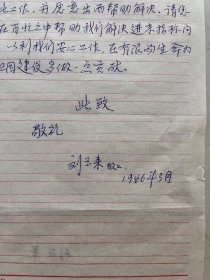 此工作，并愿意出面帮助解决，请您
在百忙之中帮助我们解决进京指标问
以利我们安心工作，在有限的生命为
四国建设多做一点贡献。
此致
敬礼
刘玉来
1986年5月